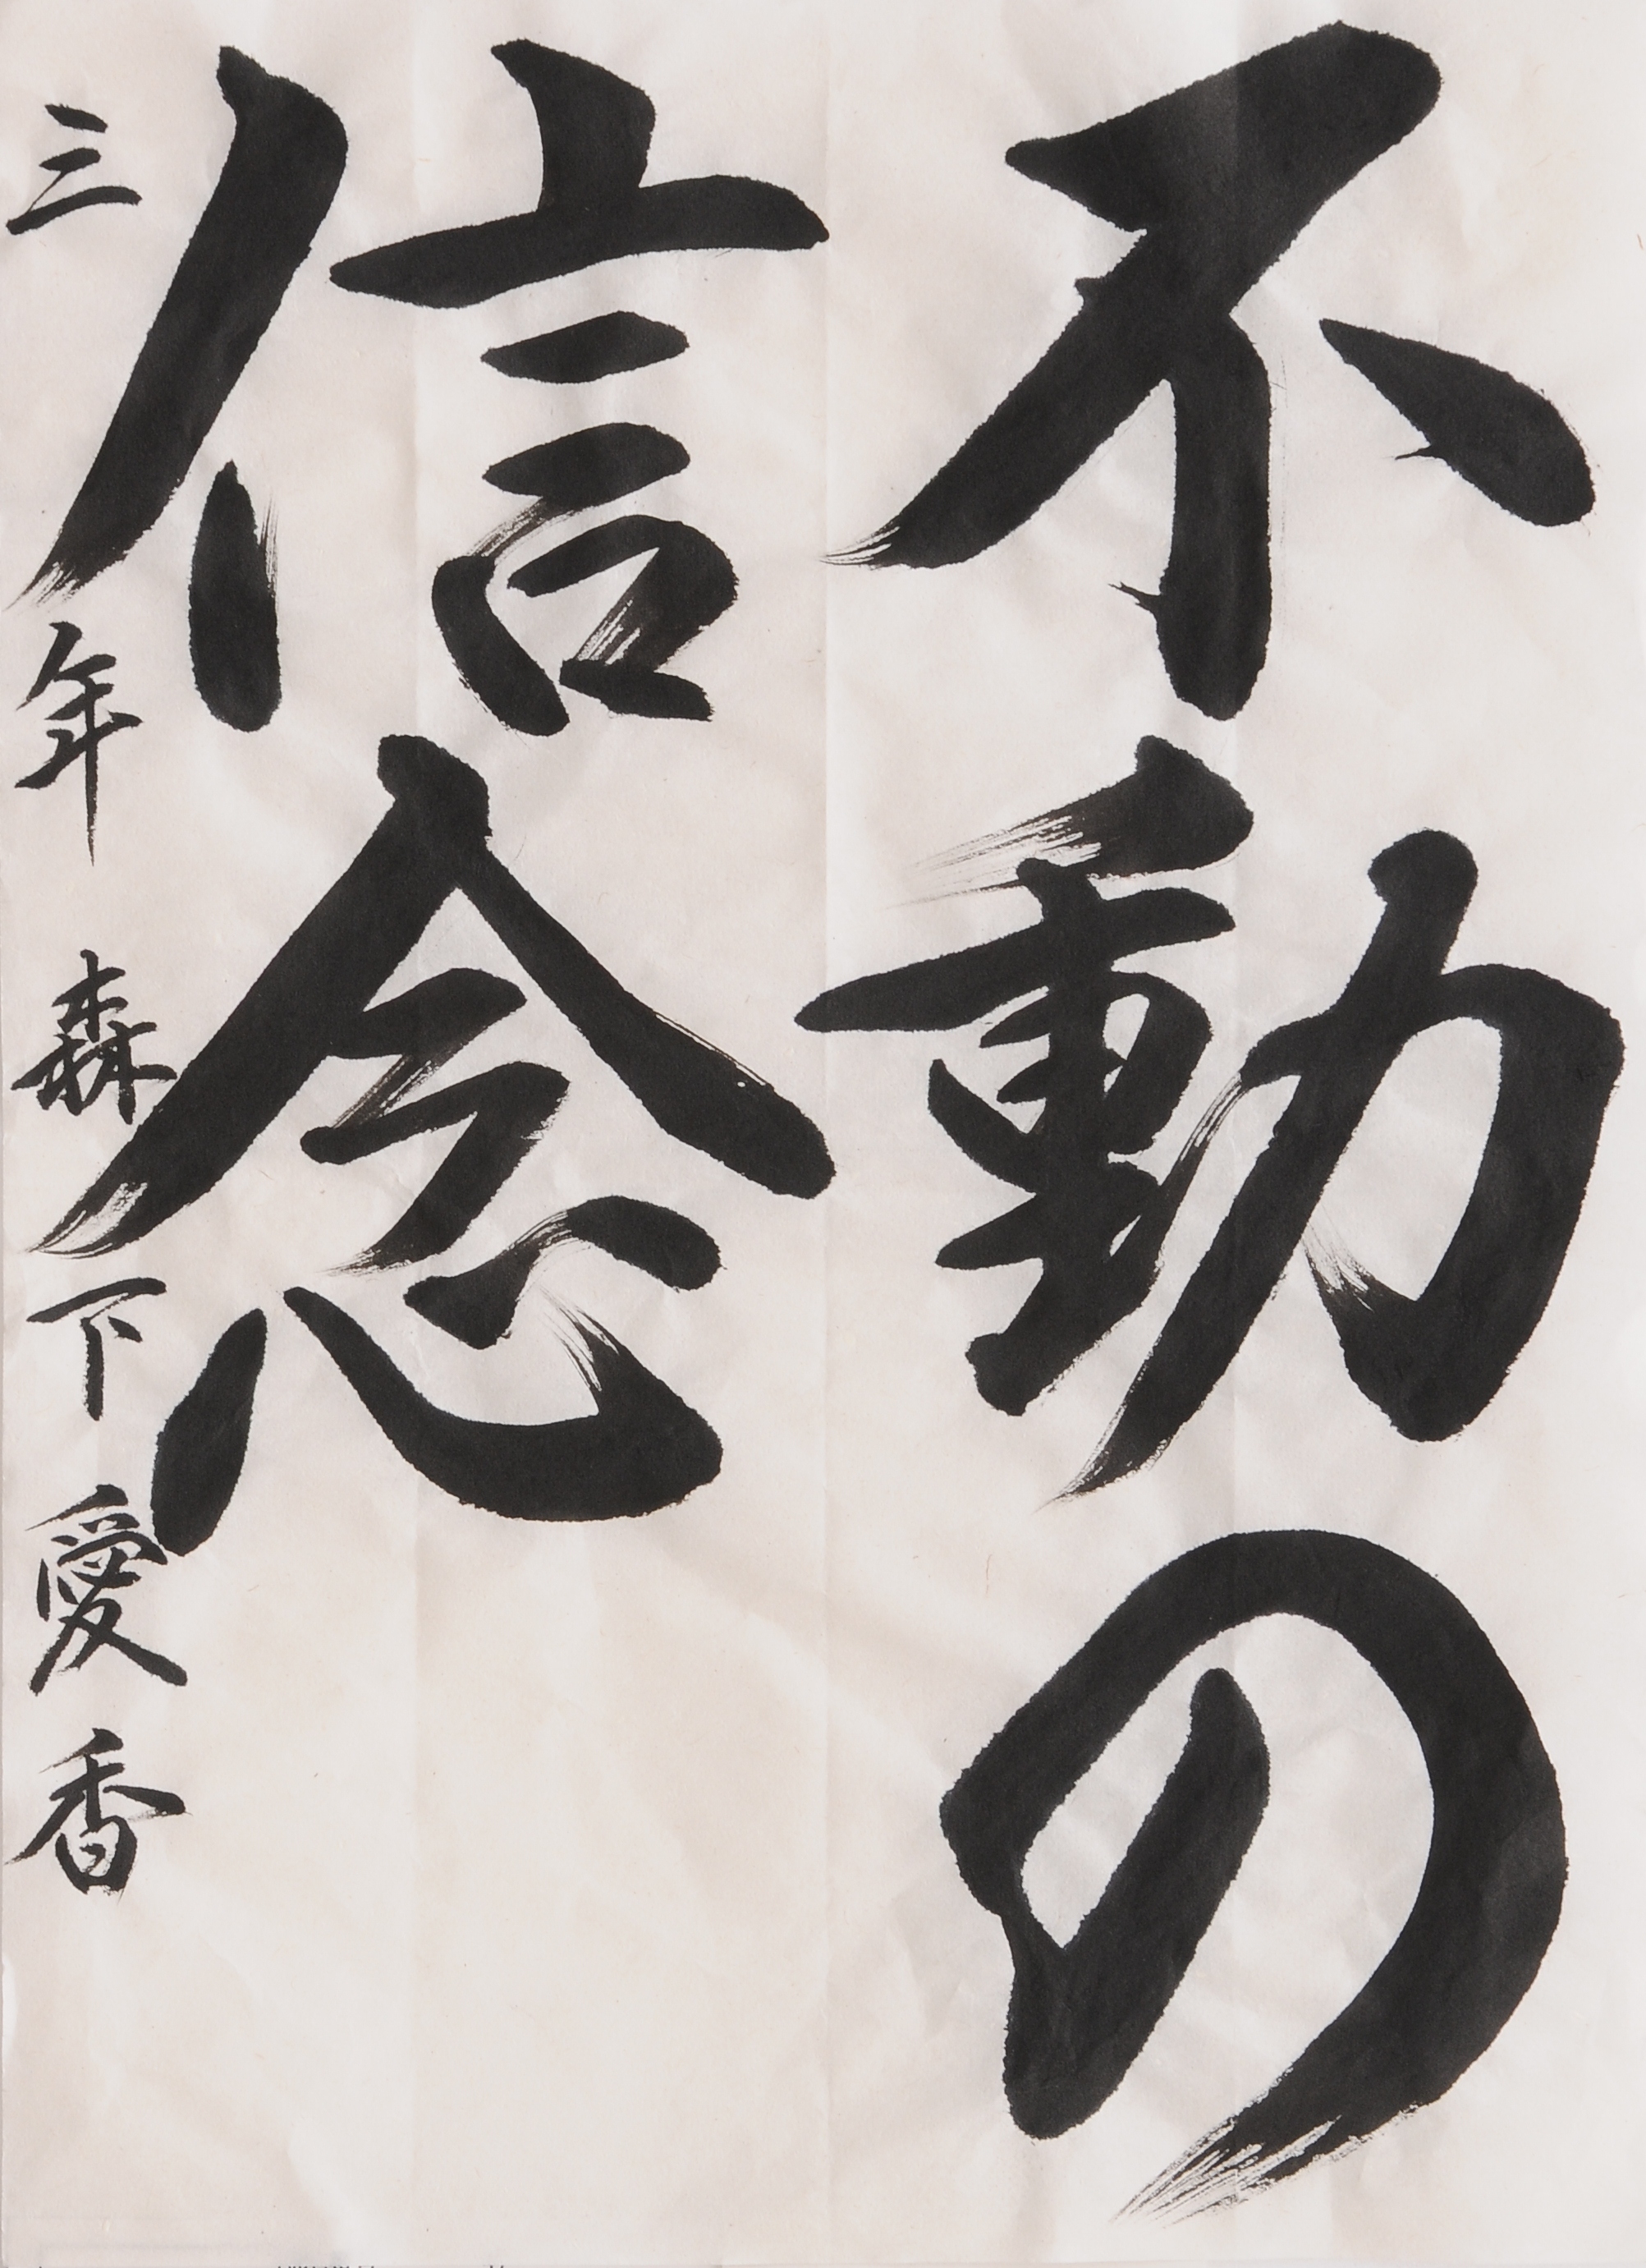 不動の
信念
三年 森下愛香